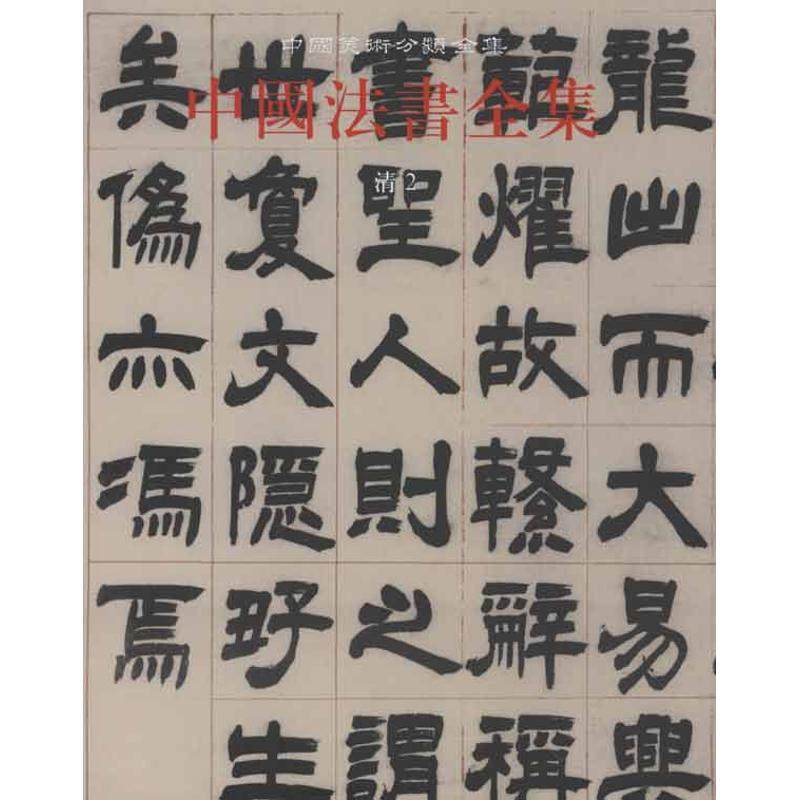 中國美術分類全集
中國法書全集
清 2
龍出而大易興
範燿故繫辭稱
書聖人則之謂
世敻文隱好生
矣偽亦馮焉